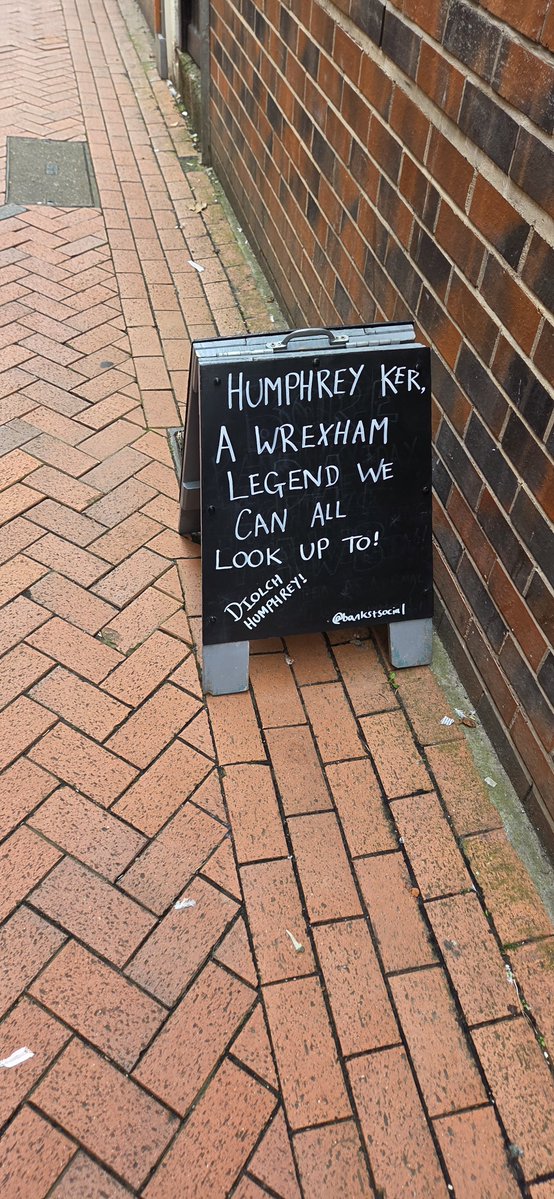 HUMPHREY KER,
A WREXHAM
LEGEND WE
CAN ALL
LOOK UP TO!
DIOLCH
HUMPHREY!
@bankstsocial